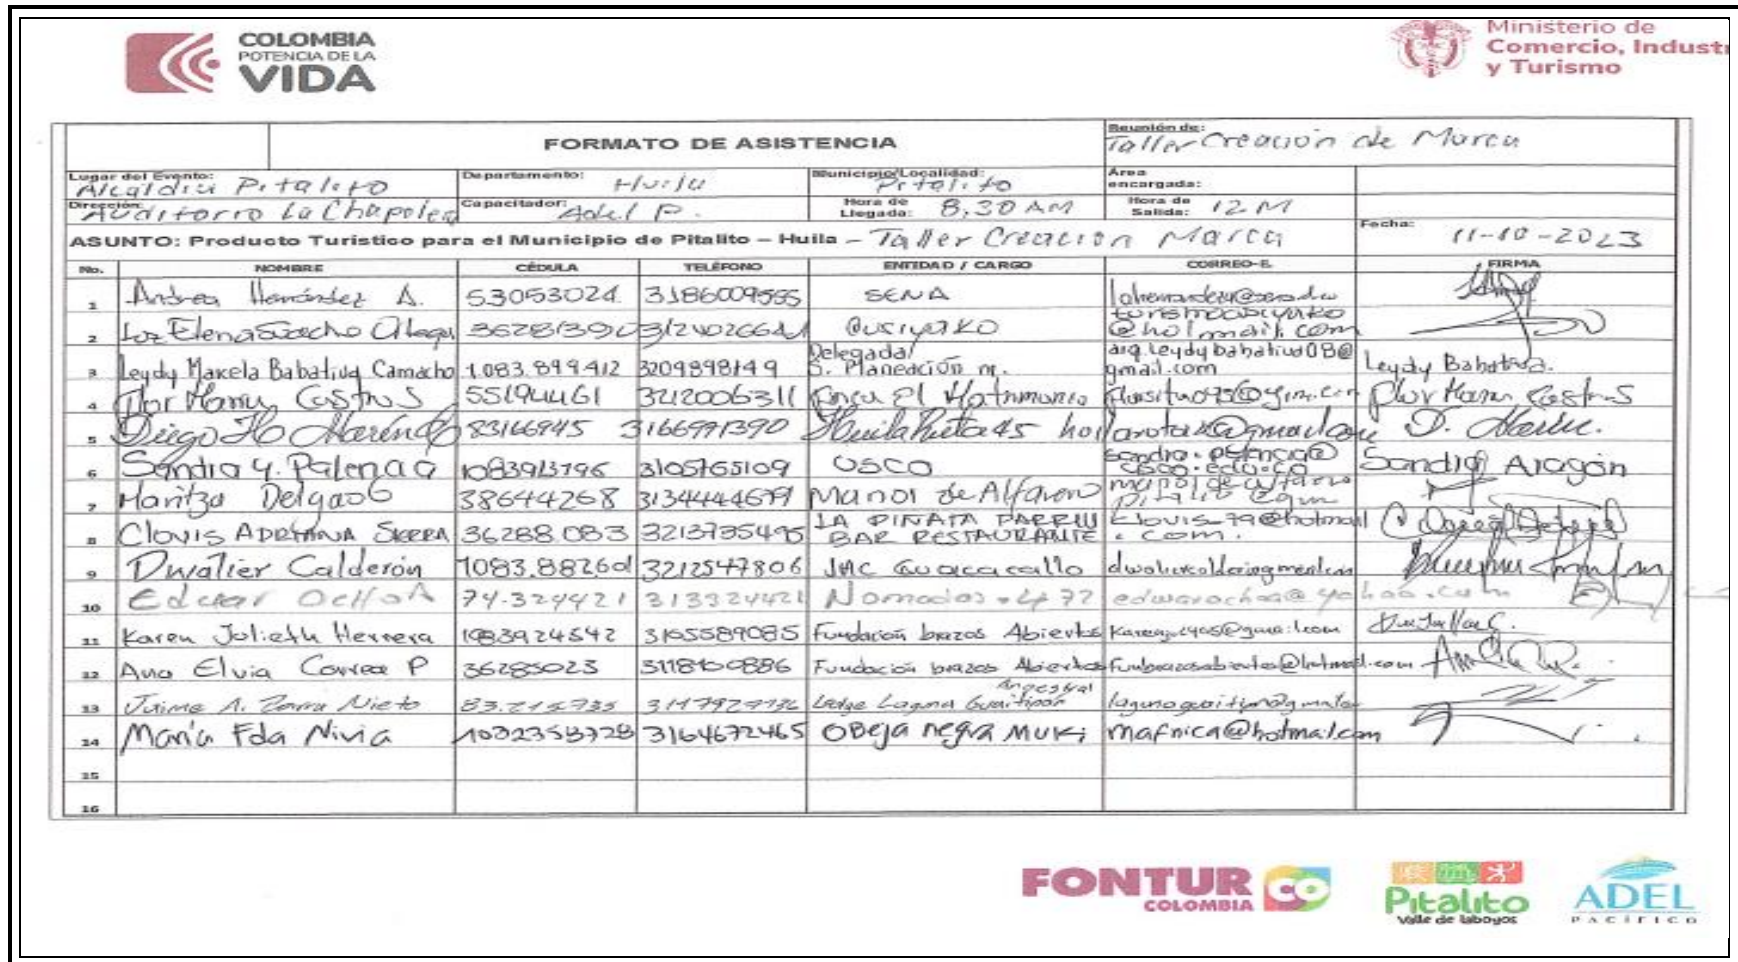 COLOMBIA
POTENCIA DE LA
VIDA
Ministerio de
Comercio, Industr
y Turismo
FORMATO DE ASISTENCIA
Reunión de:
Taller Creación de Marca
Lugar del Evento: Alcaldia Pitalito
Departamento: Huila
Municipio/Localidad: Pitalito
Área encargada:
Dirección: Auditorio La Chapolera
Capacitador: Adel P.
Hora de Llegada: 8,30 AM
Hora de Salida: 12 M
ASUNTO: Producto Turistico para el Municipio de Pitalito – Huila – Taller Creacion Marca
Fecha: 11-10-2023
No. NOMBRE CÉDULA TELÉFONO ENTIDAD / CARGO CORREO-E. FIRMA
1 Andrea Hernández A. 53053024 3186009555 SENA
2 Luz Elena 3628139
3 Leydy Marcela Babativa Camacho 1.083.899.412 3209898149 Delegada/ S. Planeación m. arq.leydybabativa08@gmail.com Leydy Babativa.
4 Flor Maria Castro S 55194461 3212006311 Finca El Matrimonio Flor Maria Castro S
5 Diego H 83166945 3166991390 Huila Ruta 45 D. Marin.
6 Sandra Y. Palencia 1083913796 3105765109 USCO Sandra Aragón
7 Maritza Delgado 38644268 3134444679 Manol de Alfarero
8 Clovis ADRIANA SIERRA 36288.083 3213735495 LA PIÑATA PARRILL BAR RESTAURANTE Clovis_79@hotmail.com.
9 Dwalier Calderón 1083.882601 3212547806 JAC Guacacallo
10 Edwar OcHoA 74.324421 313324421 Nomadas
11 Karen Julieth Herrera 1083924542 3165589085 Fundación brazos Abiertos
12 Ana Elvia Correa P 36285023 Fundación brazos Abiertos funbrazosabiertos@hotmail.com
13 Jaime A. Parra Nieto 83.215.735 Lodge Laguna Guaitipan Ancestral
14 María Fda Nivia 1032358728 3164672465 OBeja negra Muki mafnica@hotmail.com
15
16
FONTUR
COLOMBIA
CO
Pitalito
Valle de laboyos
ADEL
PACÍFICO